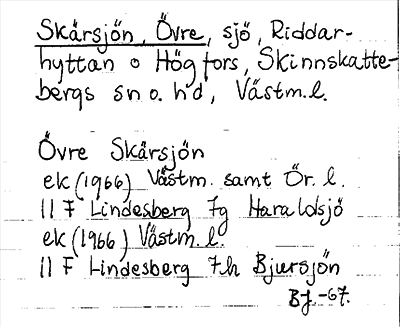 Skårsjön, Övre, sjö, Riddar-
hyttan o Högfors, Skinnskatte-
bergs sn o. hd, Västm.l.
Övre Skårsjön
ek (1966) Västm. samt Ör. l.
11 F Lindesberg 7g Haraldsjö
ek (1966) Västm. l.
11 F Lindesberg 7h Bjursjön
BJ.-67.